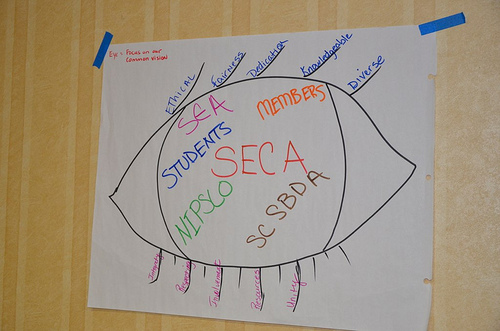 Eye - Focus on our
common vision
ETHICAL
Fairness
Dedication
Knowledgeable
Diverse
SEA
MEMBERS
STUDENTS
SECA
NIPSCO
SC SBDA
Involvement
Resources
Unity